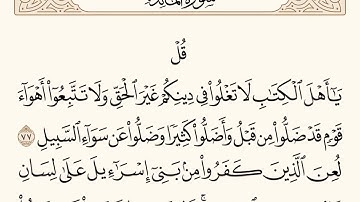 سورة المائدة
قُلْ
يَٰٓأَهْلَ ٱلْكِتَٰبِ لَا تَغْلُوا۟ فِى دِينِكُمْ غَيْرَ ٱلْحَقِّ وَلَا تَتَّبِعُوٓا۟ أَهْوَآءَ
قَوْمٍ قَدْ ضَلُّوا۟ مِن قَبْلُ وَأَضَلُّوا۟ كَثِيرًا وَضَلُّوا۟ عَن سَوَآءِ ٱلسَّبِيلِ ٧٧
لُعِنَ ٱلَّذِينَ كَفَرُوا۟ مِنۢ بَنِىٓ إِسْرَٰٓءِيلَ عَلَىٰ لِسَانِ